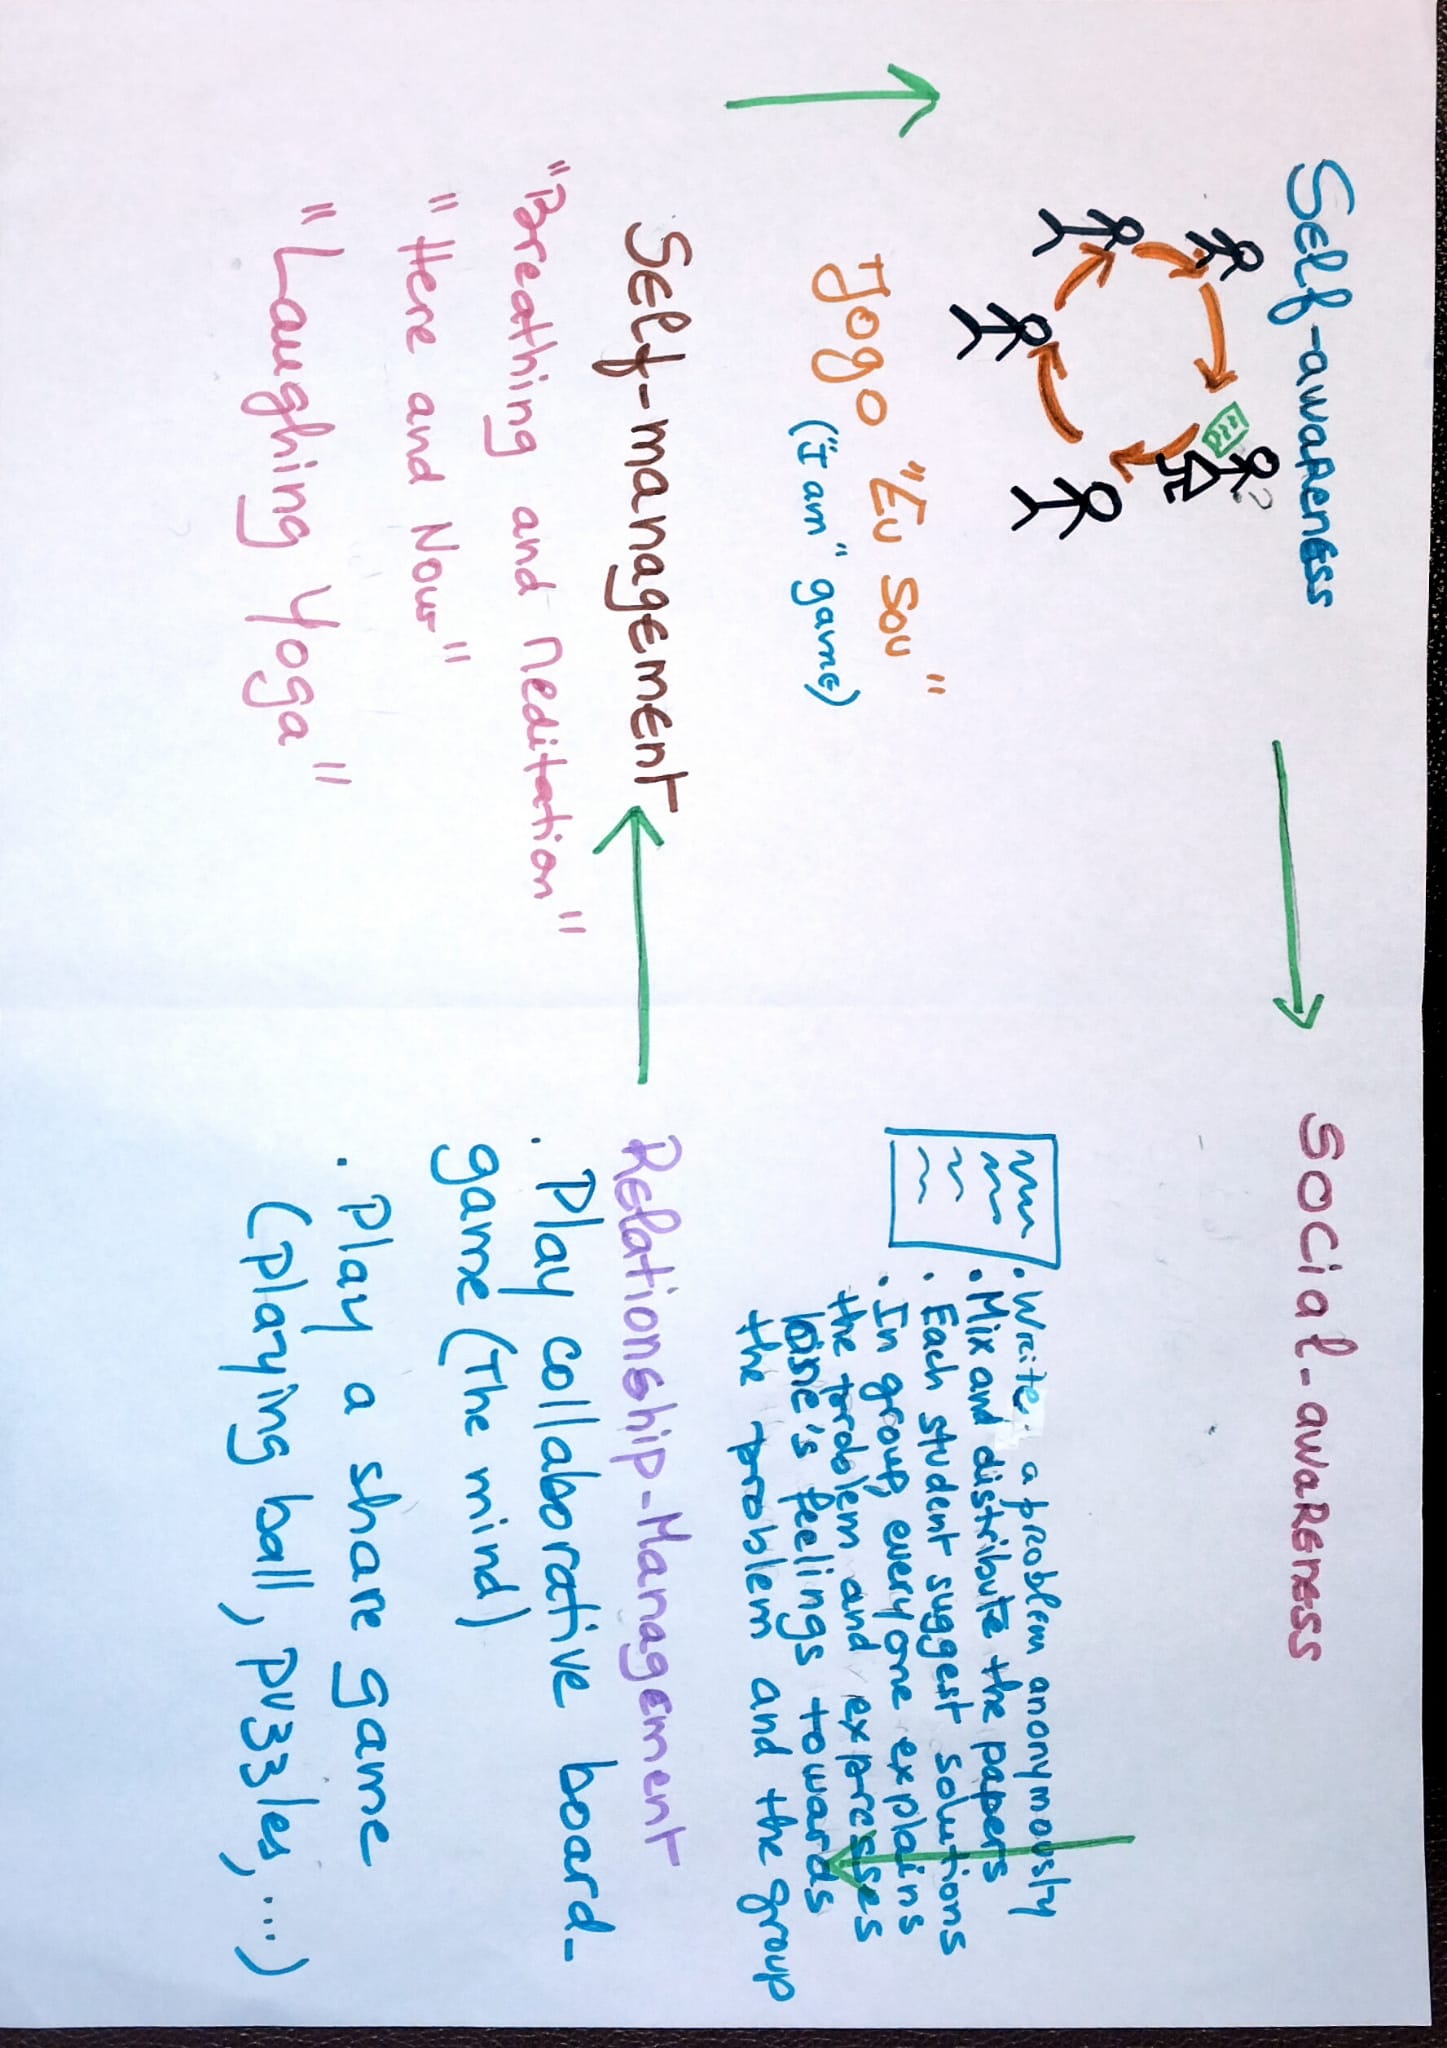 Self-awareness
Jogo "Eu Sou"
("I am" game)
Social-awareness
. Write a problem anonymously
. Mix and distribute the papers
. Each student suggest solutions
. In group, everyone explains
the problem and expresses
one's feelings towards
the problem and the group
Self-management
"Breathing and neditation"
"Here and Now"
"Laughing Yoga"
Relationship-Management
. Play collaborative board-
game (The mind)
. Play a share game
(playing ball, puzzles, ...)